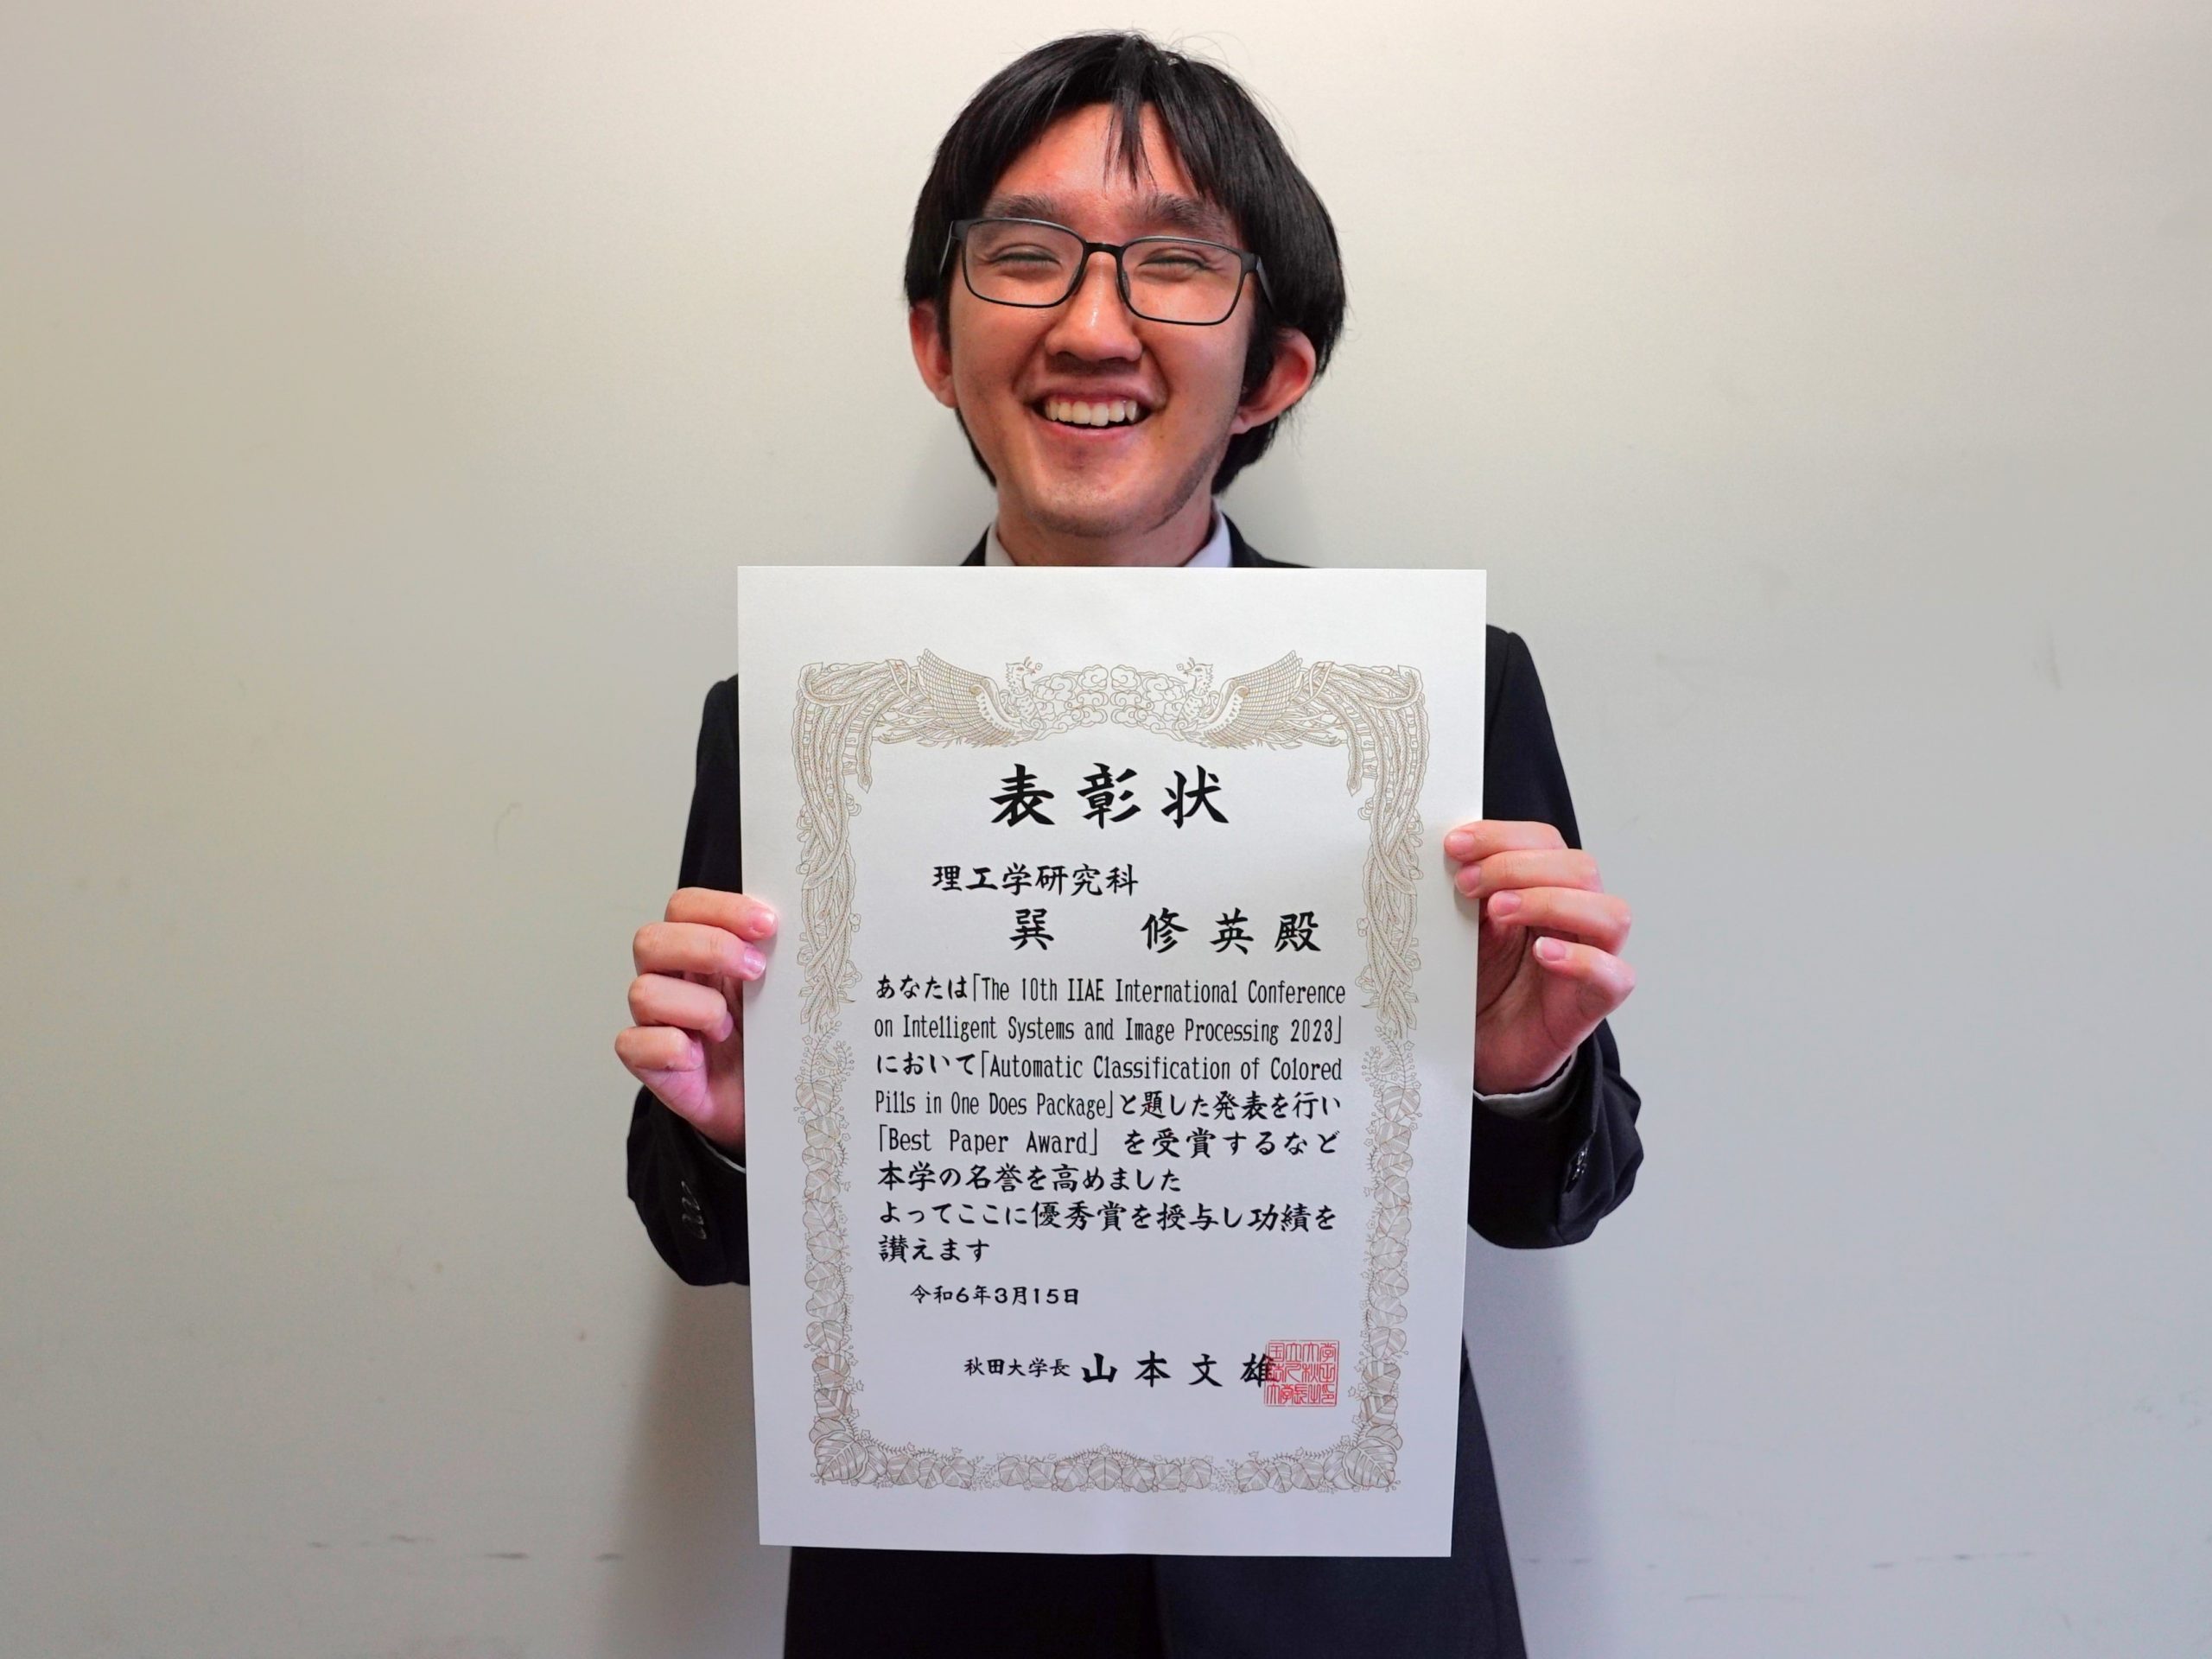 表彰状
理工学研究科
巽 修英殿
あなたは「The 10th IIAE International Conference
on Intelligent Systems and Image Processing 2023」
において「Automatic Classification of Colored
Pills in One Does Package」と題した発表を行い
「Best Paper Award」 を受賞するなど
本学の名誉を高めました
よってここに優秀賞を授与し功績を
讃えます
令和6年3月15日
秋田大学長 山本文雄